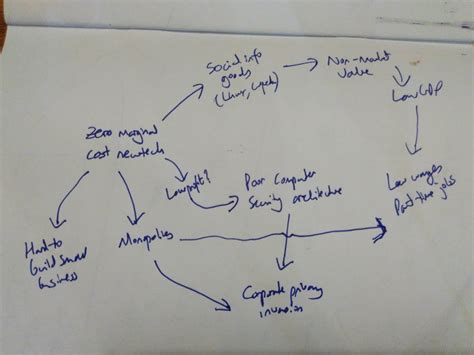 Social info
goods
(Linux,
Non-Market
Value
Low GDP
Zero marginal
cost newtech
Low profit?
Poor Computer
Security architecture
Low wages
Part-time jobs
Hard to
build small
business
Monopolies
Corporate privacy
invasion